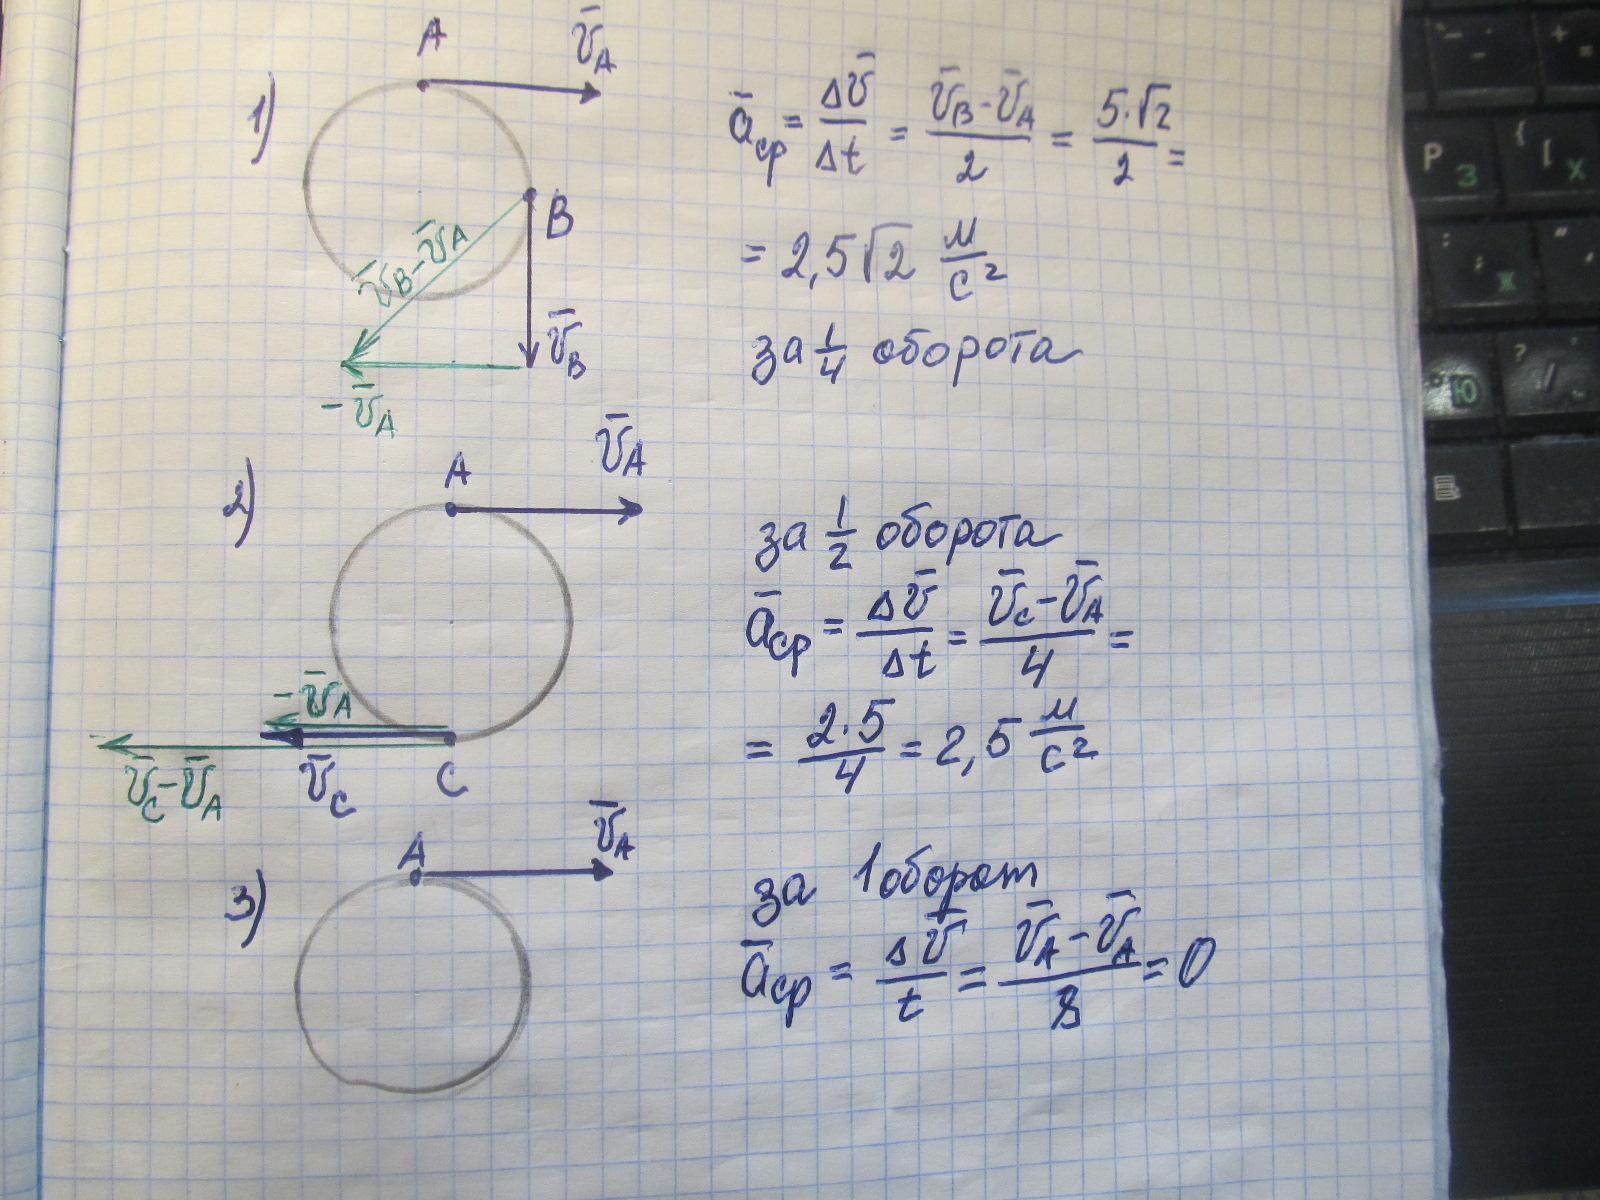 1)
A
v̄_A
B
v̄_B - v̄_A
v̄_B
-v̄_A
ā_ср = Δv̄/Δt = (v̄_B - v̄_A)/2 = 5·√2/2 =
= 2,5√2 м/с²
за 1/4 оборота
2)
A
v̄_A
-v̄_A
v̄_C - v̄_A
v̄_C
C
за 1/2 оборота
ā_ср = Δv̄/Δt = (v̄_C - v̄_A)/4 =
= 2·5/4 = 2,5 м/с²
3)
A
v̄_A
за 1 оборот
ā_ср = Δv̄/t = (v̄_A - v̄_A)/8 = 0
Р З
{ [ Х
: ; Ж
Ю
? /
+ =